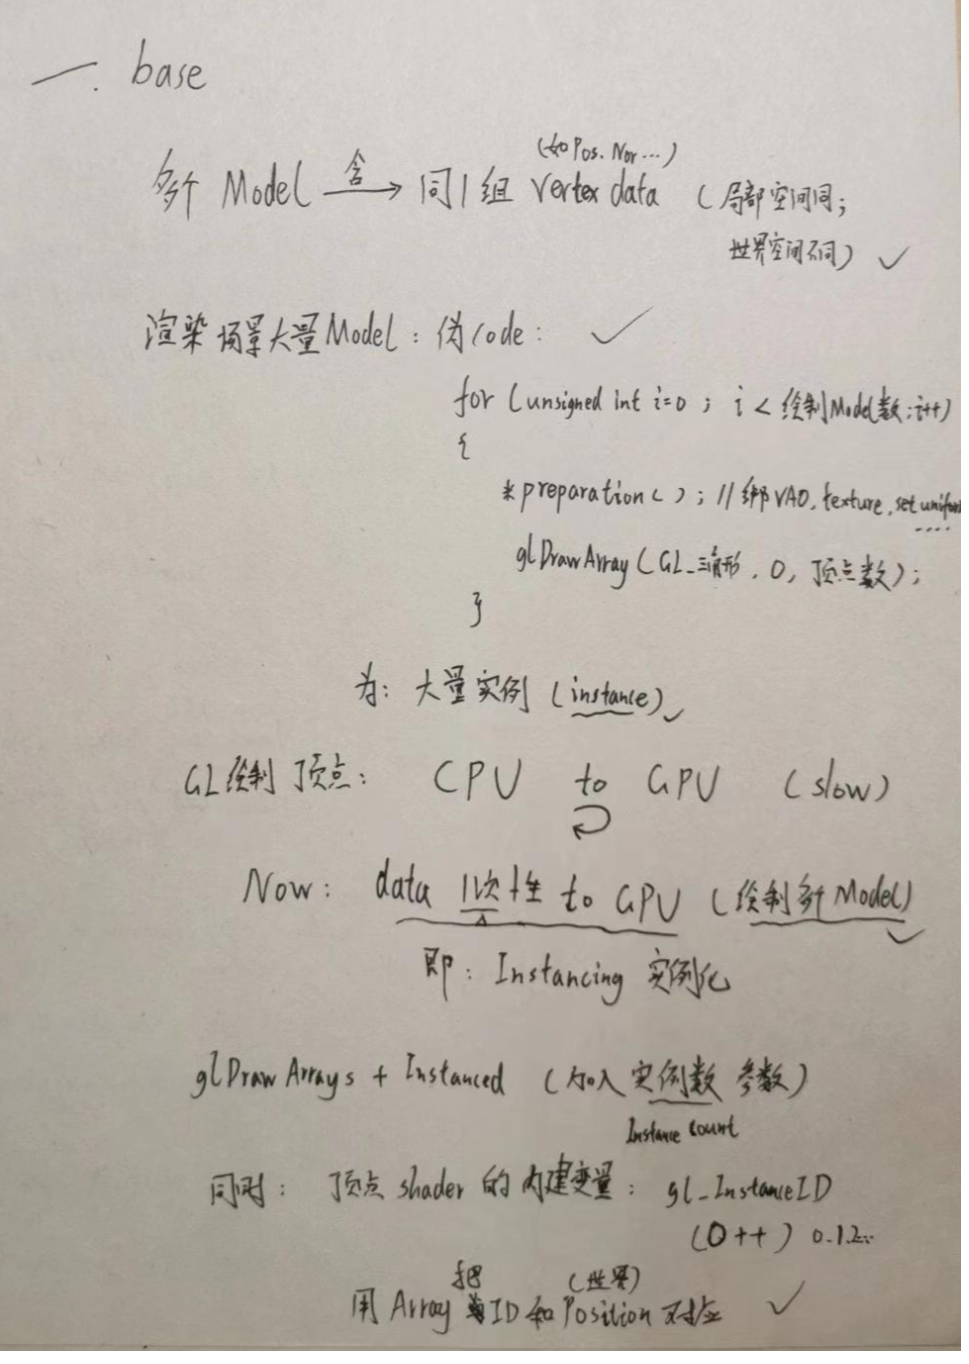 一. base
(如Pos. Nor...)
多个 Model 含→ 同1组 vertex data (局部空间同;
世界空间不同) ✓
渲染场景大量Model: 伪code: ✓
for (unsigned int i=0; i < 绘制Model数; i++)
{
*preparation(); //绑VAO, texture, set uniform
....
glDrawArray(GL_三角形, 0, 顶点数);
}
为: 大量实例 (instance) ✓
GL绘制顶点: CPU to GPU (slow)
Now: data 1次性 to GPU (绘制多个Model) ✓
即: Instancing 实例化
glDrawArrays + Instanced (加入实例数 参数)
Instance count
同时: 顶点 shader 的内建变量: gl_InstanceID
(0++) 0.1.2...
把 (世界)
用 Array ID 和 Position 对应 ✓